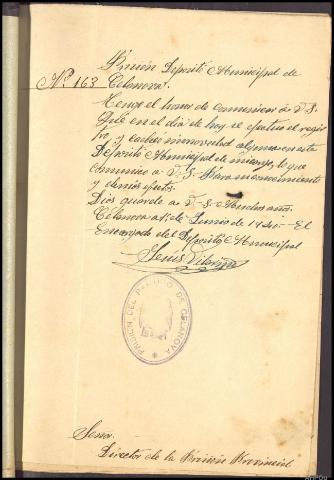 Prisión Depósito Municipal de
Nº 163 Celanova.
Tengo el honor de comunicar a V.S.
que en el dia de hoy se efectuo el regis
tro, y cachéo
en este
Depósito Municipal de mi cargo, lo que
comunico a V.S. Para su conocimiento
y demás efectos.
Dios guarde a V.S. Muchos años.
Celanova a 1º de Junio de 1940 - El
Encargado del Depósito Municipal
Jesús
PRISION DEL PARTIDO DE CELANOVA
Señor.
Director de la Prisión Provincial